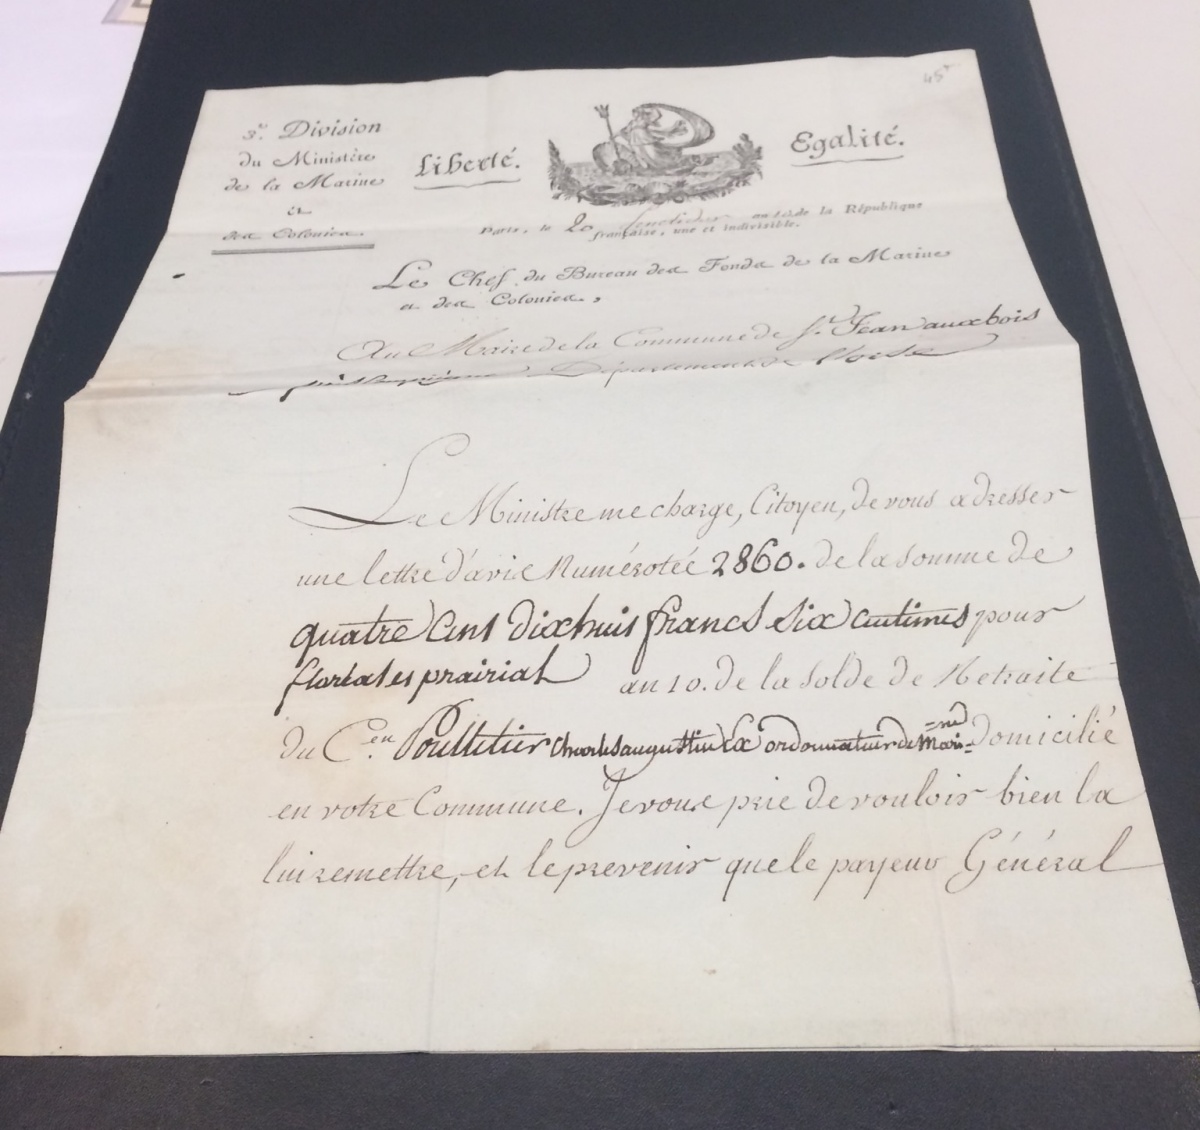 45
3.e Division
du Ministère
de la Marine
et
des Colonies.
Liberté.
Egalité.
Paris, le 20 fructidor an 10 de la République
française, une et indivisible.
Le Chef du Bureau des Fonds de la Marine
et des Colonies,
Au Maire de la Commune de St. Jean aux bois
Département de l'oise
Le Ministre me charge, Citoyen, de vous adresser
une lettre d'avis Numérotée 2860. de la somme de
quatre Cent dixhuit francs six centimes pour
floréal et prairial an 10. de la Solde de Retraite
du C.en Poulletier Charles augustin Ex ordonnateur de Mari=
=ne Domicilié
en votre Commune. Je vous prie de vouloir bien la
lui remettre, et le prevenir que le payeur Général